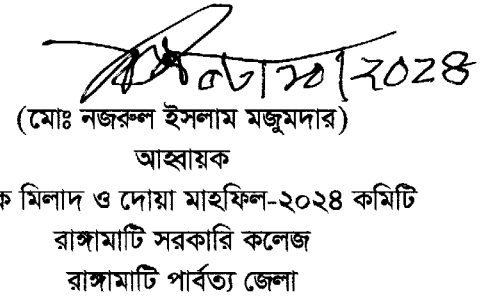 (মোঃ নজরুল ইসলাম মজুমদার)
আহ্বায়ক
ক মিলাদ ও দোয়া মাহফিল-২০২৪ কমিটি
রাঙ্গামাটি সরকারি কলেজ
রাঙ্গামাটি পার্বত্য জেলা